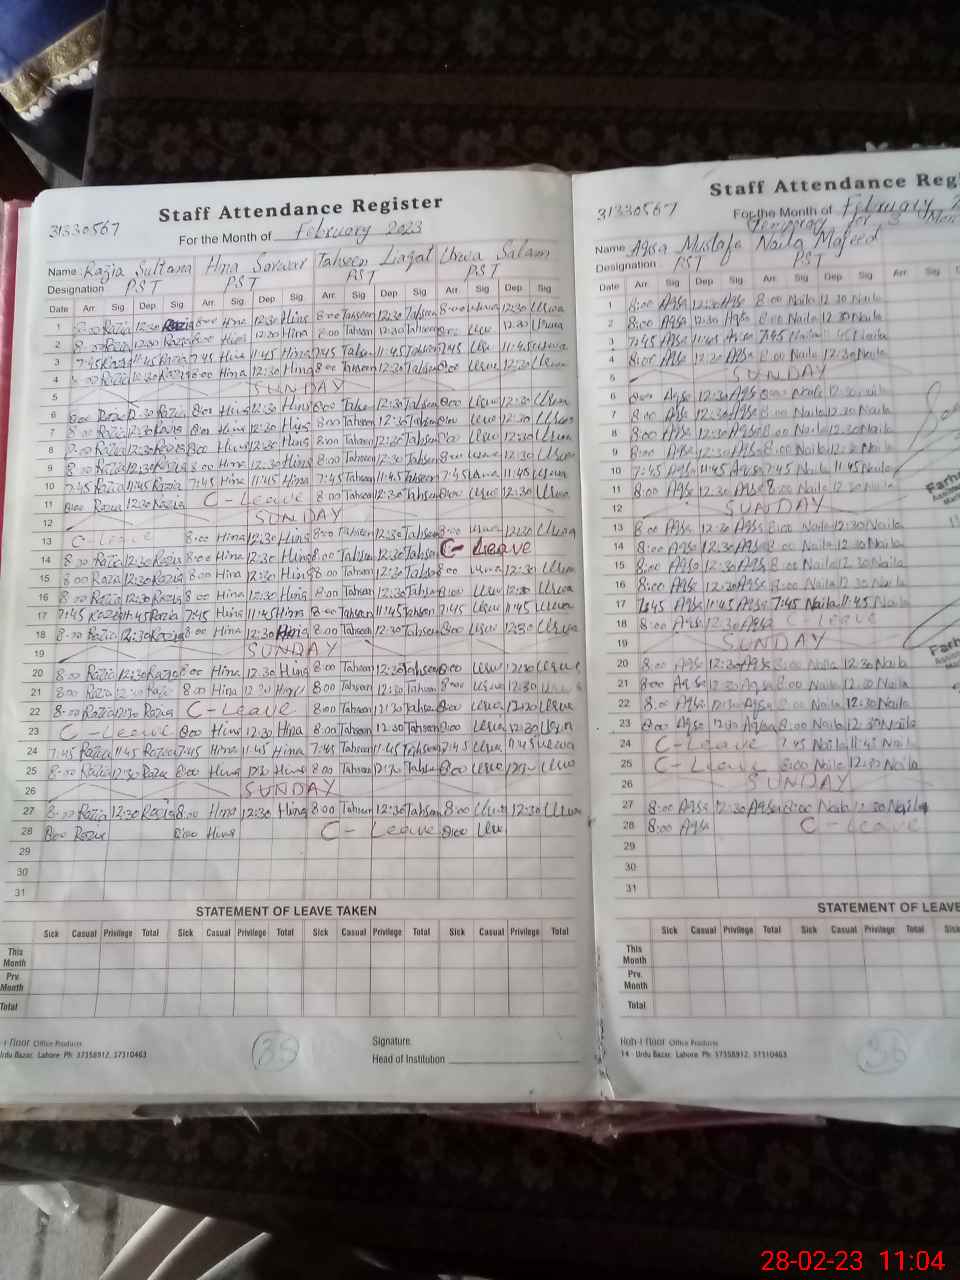 31330567
Staff Attendance Register
For the Month of February 2023
Name Razia Sultana Hina Sarwar Tahseen Liaqat Uswa Salam
Designation PST PST PST PST
Date Arr. Sig Dep Sig Arr. Sig Dep Sig Arr. Sig Dep Sig Arr. Sig Dep Sig
1 8:00 Razia 12:30 Razia 8:00 Hina 12:30 Hina 8:00 Tahseen 12:30 Tahseen 8:00 Uswa 12:30 Uswa
2 8:00 Razia 12:30 Razia 8:00 Hina 12:30 Hina 8:00 Tahseen 12:30 Tahseen 8:00 Uswa 12:30 Uswa
3 7:45 Razia 11:45 Razia 7:45 Hina 11:45 Hina 7:45 Tahseen 11:45 Tahseen 7:45 Uswa 11:45 Uswa
4 8:00 Razia 12:30 Razia 8:00 Hina 12:30 Hina 8:00 Tahseen 12:30 Tahseen 8:00 Uswa 12:30 Uswa
5 SUNDAY
6 8:00 Razia 12:30 Razia 8:00 Hina 12:30 Hina 8:00 Tahseen 12:30 Tahseen 8:00 Uswa 12:30 Uswa
7 8:00 Razia 12:30 Razia 8:00 Hina 12:30 Hina 8:00 Tahseen 12:30 Tahseen 8:00 Uswa 12:30 Uswa
8 8:00 Razia 12:30 Razia 8:00 Hina 12:30 Hina 8:00 Tahseen 12:30 Tahseen 8:00 Uswa 12:30 Uswa
9 8:00 Razia 12:30 Razia 8:00 Hina 12:30 Hina 8:00 Tahseen 12:30 Tahseen 8:00 Uswa 12:30 Uswa
10 7:45 Razia 11:45 Razia 7:45 Hina 11:45 Hina 7:45 Tahseen 11:45 Tahseen 7:45 Uswa 11:45 Uswa
11 8:00 Razia 12:30 Razia C-Leave 8:00 Tahseen 12:30 Tahseen 8:00 Uswa 12:30 Uswa
12 SUNDAY
13 C-Leave 8:00 Hina 12:30 Hina 8:00 Tahseen 12:30 Tahseen 8:00 Uswa 12:30 Uswa
14 8:00 Razia 12:30 Razia 8:00 Hina 12:30 Hina 8:00 Tahseen 12:30 Tahseen C-Leave
15 8:00 Razia 12:30 Razia 8:00 Hina 12:30 Hina 8:00 Tahseen 12:30 Tahseen 8:00 Uswa 12:30 Uswa
16 8:00 Razia 12:30 Razia 8:00 Hina 12:30 Hina 8:00 Tahseen 12:30 Tahseen 8:00 Uswa 12:30 Uswa
17 7:45 Razia 11:45 Razia 7:45 Hina 11:45 Hina 8:00 Tahseen 11:45 Tahseen 7:45 Uswa 11:45 Uswa
18 8:00 Razia 12:30 Razia 8:00 Hina 12:30 Hina 8:00 Tahseen 12:30 Tahseen 8:00 Uswa 12:30 Uswa
19 SUNDAY
20 8:00 Razia 12:30 Razia 8:00 Hina 12:30 Hina 8:00 Tahseen 12:30 Tahseen 8:00 Uswa 12:30 Uswa
21 8:00 Razia 12:30 Razia 8:00 Hina 12:30 Hina 8:00 Tahseen 12:30 Tahseen 8:00 Uswa 12:30 Uswa
22 8:00 Razia 12:30 Razia C-Leave 8:00 Tahseen 12:30 Tahseen 8:00 Uswa 12:30 Uswa
23 C-Leave 8:00 Hina 12:30 Hina 8:00 Tahseen 12:30 Tahseen 8:00 Uswa 12:30 Uswa
24 7:45 Razia 11:45 Razia 7:45 Hina 11:45 Hina 7:45 Tahseen 11:45 Tahseen 7:45 Uswa 11:45 Uswa
25 8:00 Razia 12:30 Razia 8:00 Hina 12:30 Hina 8:00 Tahseen 12:30 Tahseen 8:00 Uswa 12:30 Uswa
26 SUNDAY
27 8:00 Razia 12:30 Razia 8:00 Hina 12:30 Hina 8:00 Tahseen 12:30 Tahseen 8:00 Uswa 12:30 Uswa
28 8:00 Razia 8:00 Hina C-Leave 8:00 Uswa
29
30
31
STATEMENT OF LEAVE TAKEN
Sick Casual Privilege Total Sick Casual Privilege Total Sick Casual Privilege Total Sick Casual Privilege Total
This Month
Prv. Month
Total
Office Products
Urdu Bazar. Lahore Ph: 37358912, 37310463
35
Signature
Head of Institution
31330567
Staff Attendance Reg
For the Month of February
Temporary for 3
Name Aqsa Mustafa Naila Majeed
Designation PST PST
Date Arr. Sig Dep Sig Arr. Sig Dep Sig Arr. Sig
1 8:00 Aqsa 12:30 Aqsa 8:00 Naila 12:30 Naila
2 8:00 Aqsa 12:30 Aqsa 8:00 Naila 12:30 Naila
3 7:45 Aqsa 11:45 Aqsa 7:45 Naila 11:45 Naila
4 8:00 Aqsa 12:30 Aqsa 8:00 Naila 12:30 Naila
5 SUNDAY
6 8:00 Aqsa 12:30 Aqsa 8:00 Naila 12:30 Naila
7 8:00 Aqsa 12:30 Aqsa 8:00 Naila 12:30 Naila
8 8:00 Aqsa 12:30 Aqsa 8:00 Naila 12:30 Naila
9 8:00 Aqsa 12:30 Aqsa 8:00 Naila 12:30 Naila
10 7:45 Aqsa 11:45 Aqsa 7:45 Naila 11:45 Naila
11 8:00 Aqsa 12:30 Aqsa 8:00 Naila 12:30 Naila
12 SUNDAY
13 8:00 Aqsa 12:30 Aqsa 8:00 Naila 12:30 Naila
14 8:00 Aqsa 12:30 Aqsa 8:00 Naila 12:30 Naila
15 8:00 Aqsa 12:30 Aqsa 8:00 Naila 12:30 Naila
16 8:00 Aqsa 12:30 Aqsa 8:00 Naila 12:30 Naila
17 7:45 Aqsa 11:45 Aqsa 7:45 Naila 11:45 Naila
18 8:00 Aqsa 12:30 Aqsa C-Leave
19 SUNDAY
20 8:00 Aqsa 12:30 Aqsa 8:00 Naila 12:30 Naila
21 8:00 Aqsa 12:30 Aqsa 8:00 Naila 12:30 Naila
22 8:00 Aqsa 12:30 Aqsa 8:00 Naila 12:30 Naila
23 8:00 Aqsa 12:30 Aqsa 8:00 Naila 12:30 Naila
24 C-Leave 7:45 Naila 11:45 Naila
25 C-Leave 8:00 Naila 12:30 Naila
26 SUNDAY
27 8:00 Aqsa 12:30 Aqsa 8:00 Naila 12:30 Naila
28 8:00 Aqsa C-Leave
29
30
31
Farh
Farh
STATEMENT OF LEAVE
Sick Casual Privilege Total Sick Casual Privilege Total Sick
This Month
Prv. Month
Total
Office Products
14 - Urdu Bazar. Lahore Ph: 37358912, 37310463
36
28-02-23 11:04